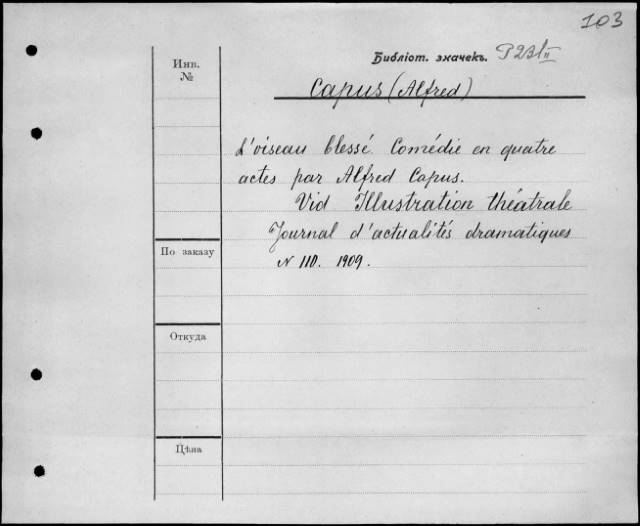 103
Библіот. значекъ.
Инв.
№
Capus (Alfred)
L'oiseau blessé. Comédie en quatre
actes par Alfred Capus.
Vid Illustration théatrale
Journal d'actualités dramatiques
N 110. 1909.
По заказу
Откуда
Цѣна